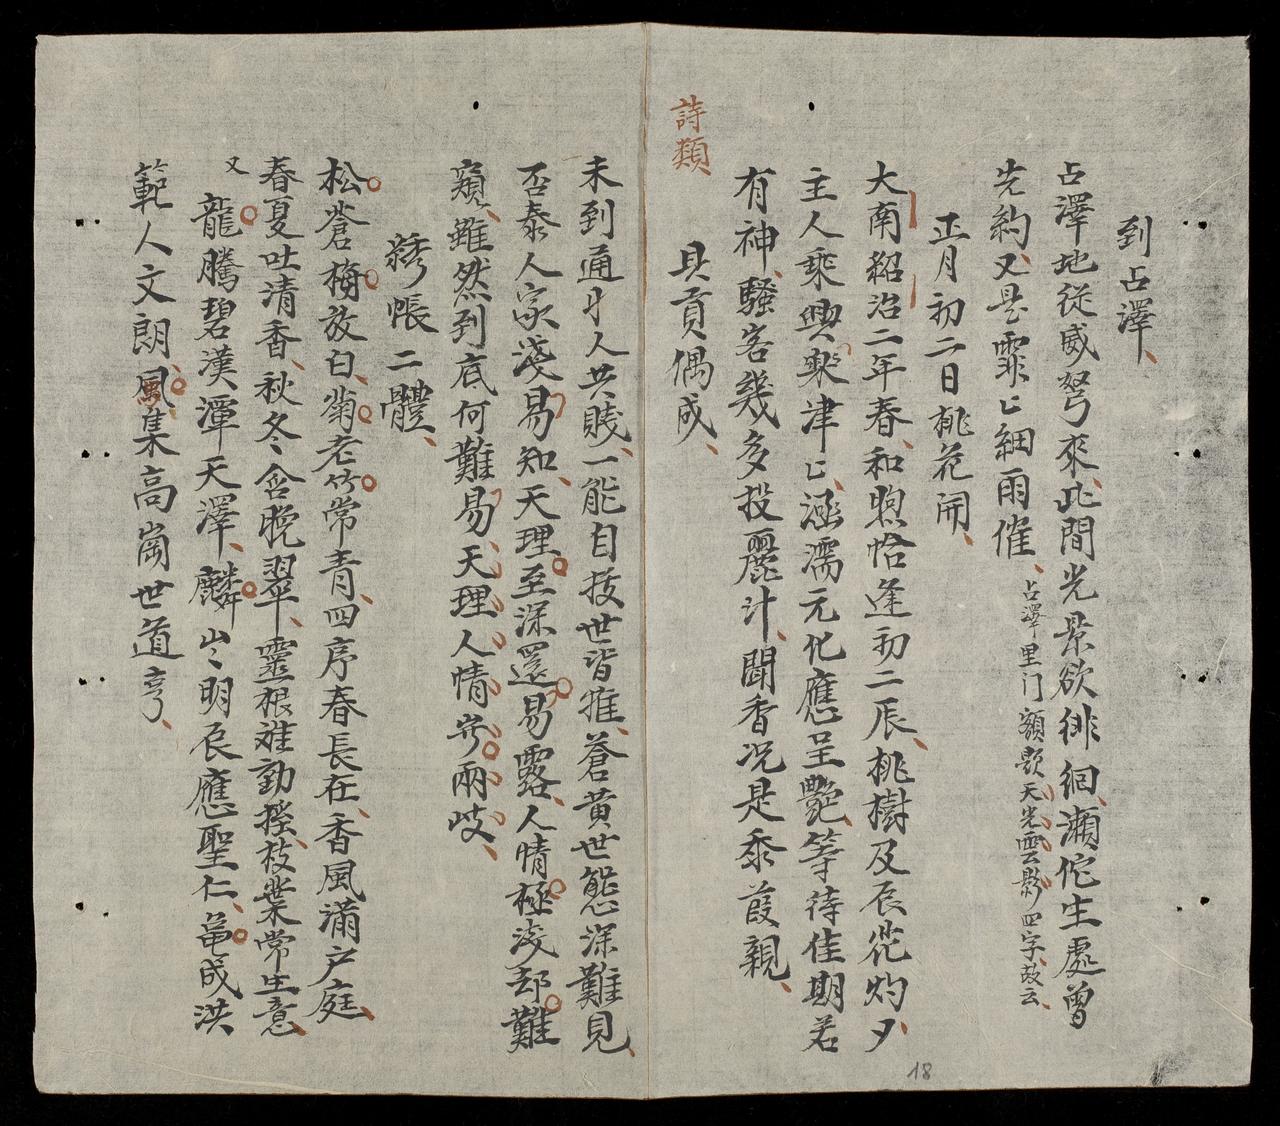 到占澤
占澤地從威弩來此間光景欲徘徊瀨佗生處曾
先約又是霏〻細雨催占澤里门額題天光雲影四字故云
正月初二日桃花開
大南紹治二年春和煦恰逢初二辰桃樹及辰花灼夕
主人乘興樂津〻涵濡元化應呈艷等待佳期若
有神騷客幾多投麗計聞香况是忝葭親
具貢偶成
詩類
未到通才人共賤一能自技世皆推蒼黄世態深難見
否泰人家淺易知天理至深還易露人情極淺却難
窺雖然到底何難易天理人情岢兩岐
綉帳二體
松蒼梅放白菊老竹常青四序春長在香風滿户庭
春夏吐清香秋冬含晚翠靈根难動搖枝葉常生意
又龍騰碧漢潭天澤麟出明辰應聖仁黾成洪
範人文朗風集高崗世道亨
18